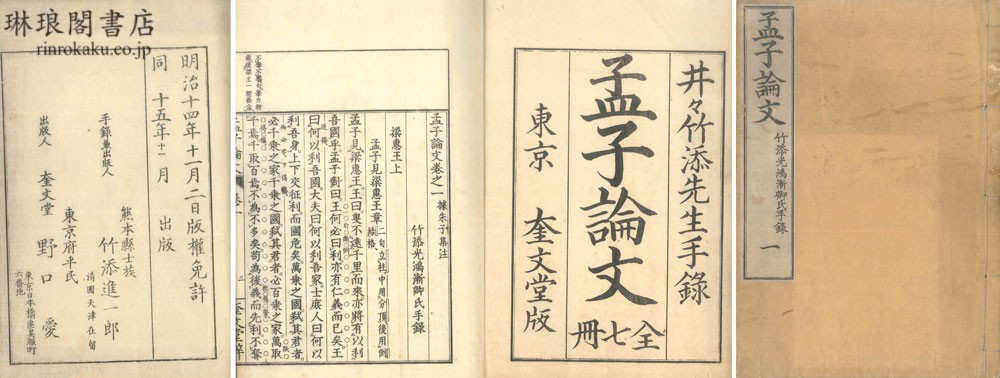 琳琅閣書店
rinrokaku.co.jp
孟子論文
竹添光鴻漸卿氏手錄
一
井々竹添先生手錄
孟子論文
全七冊
東京 奎文堂版
孟子論文卷之一 據朱子集注
竹添光鴻漸卿氏手錄
梁惠王上
孟子見梁惠王章 二句立柱中用分頂後用倒
結格
孟子見梁惠王王曰叟不遠千里而來亦將有以利
吾國乎孟子對曰王何必曰利亦有仁義而已矣王
曰何以利吾國大夫曰何以利吾家士庶人曰何以
利吾身上下交征利而國危矣萬乘之國弑其君者
必千乘之家千乘之國弑其君者必百乘之家萬取
千焉千取百焉不為不多矣苟為後義而先利不奪
明治十四年十一月二日版權免許
同 十五年十一月 出版
熊本縣士族
手錄兼出版人 竹添進一郎
清國天津在留
東京府平民
出版人 奎文堂 野口愛
六番地